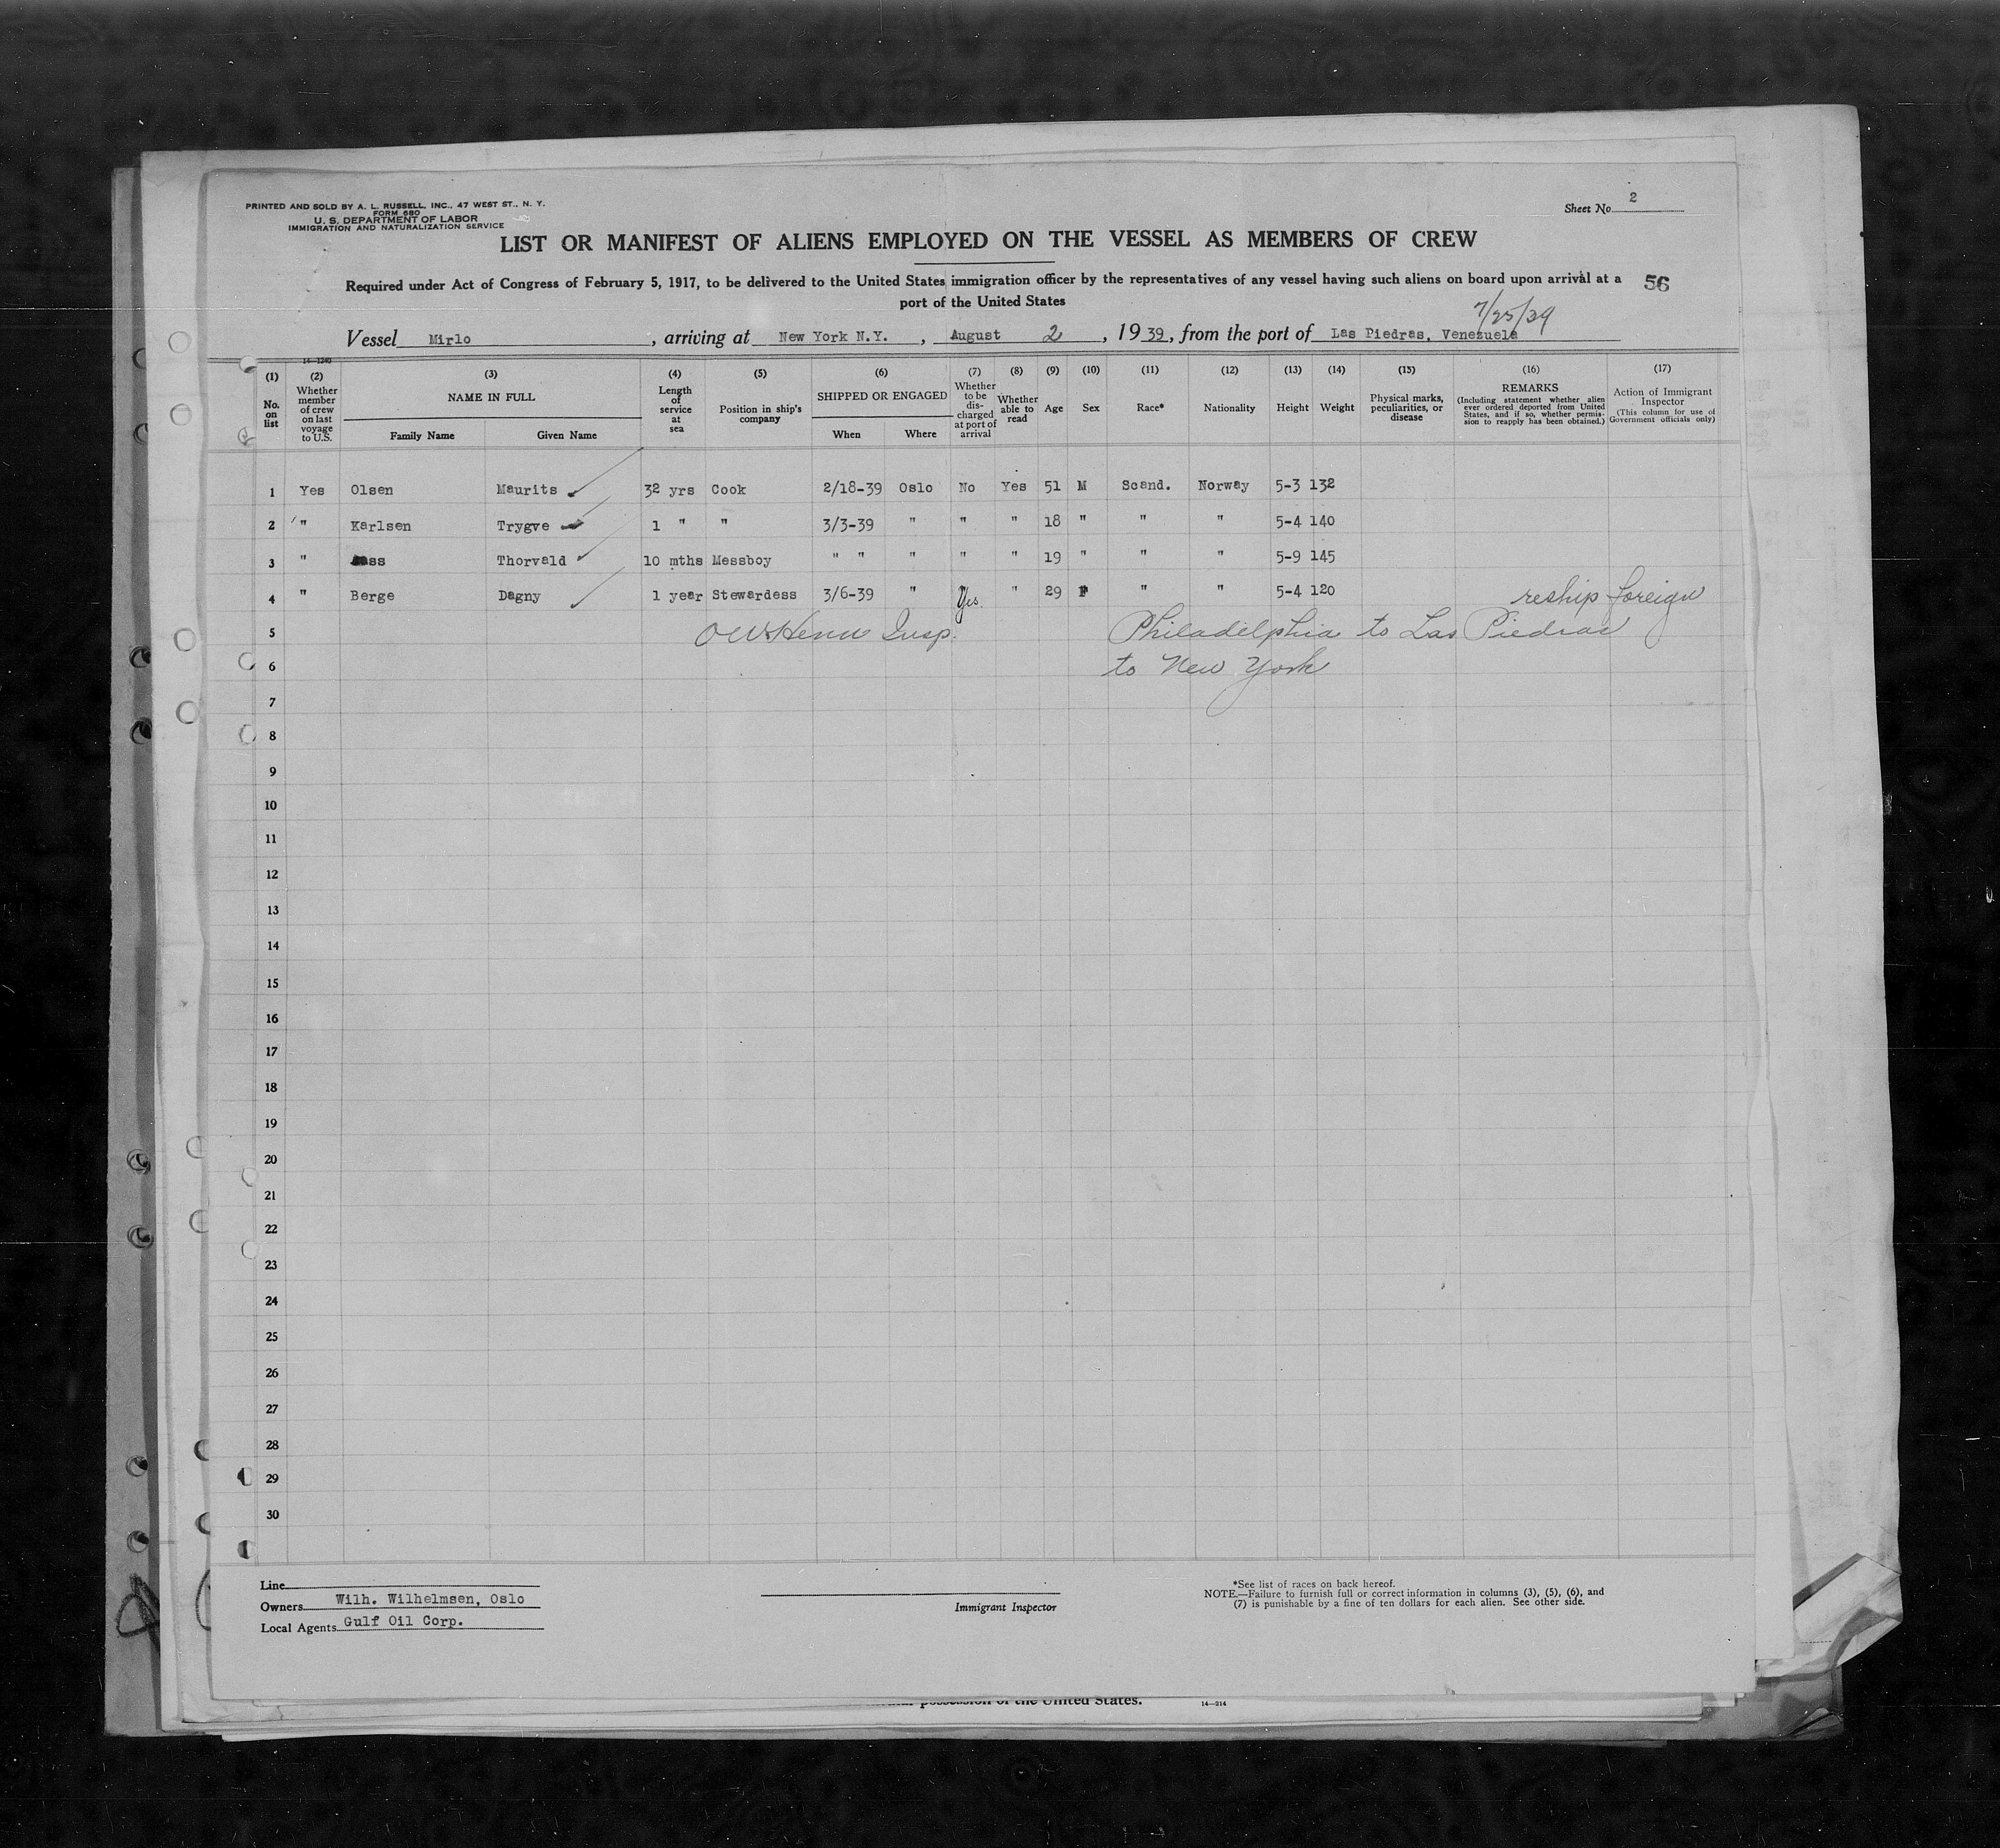 PRINTED AND SOLD BY A. L. RUSSELL, INC., 47 WEST ST., N. Y.
FORM 680
U. S. DEPARTMENT OF LABOR
IMMIGRATION AND NATURALIZATION SERVICE
Sheet No. 2
LIST OR MANIFEST OF ALIENS EMPLOYED ON THE VESSEL AS MEMBERS OF CREW
Required under Act of Congress of February 5, 1917, to be delivered to the United States immigration officer by the representatives of any vessel having such aliens on board upon arrival at a
port of the United States
56
7/25/39
Vessel Mirlo, arriving at New York N.Y., August 2, 1939, from the port of Las Piedras, Venezuela
14-1240
(1) No. on list
(2) Whether member of crew on last voyage to U.S.
(3) NAME IN FULL
Family Name Given Name
(4) Length of service at sea
(5) Position in ship's company
(6) SHIPPED OR ENGAGED
When Where
(7) Whether to be discharged at port of arrival
(8) Whether able to read
(9) Age
(10) Sex
(11) Race*
(12) Nationality
(13) Height
(14) Weight
(15) Physical marks, peculiarities, or disease
(16) REMARKS
(Including statement whether alien ever ordered deported from United States, and if so, whether permission to reapply has been obtained.)
(17) Action of Immigrant Inspector
(This column for use of Government officials only)
1 Yes Olsen Maurits 32 yrs Cook 2/18-39 Oslo No Yes 51 M Scand. Norway 5-3 132
2 " Karlsen Trygve 1 " " 3/3-39 " " " 18 " " " 5-4 140
3 " Thorvald 10 mths Messboy " " " " " 19 " " " 5-9 145
4 " Berge Dagny 1 year Stewardess 3/6-39 " Yes. " 29 F " " 5-4 120 reship foreign
5 Insp. Philadelphia to Las Piedras
6 to New York
7
8
9
10
11
12
13
14
15
16
17
18
19
20
21
22
23
24
25
26
27
28
29
30
Line
Owners Wilh. Wilhelmsen, Oslo
Local Agents Gulf Oil Corp.
Immigrant Inspector
*See list of races on back hereof.
NOTE.—Failure to furnish full or correct information in columns (3), (5), (6), and
(7) is punishable by a fine of ten dollars for each alien. See other side.
possession of the United States.
14-214